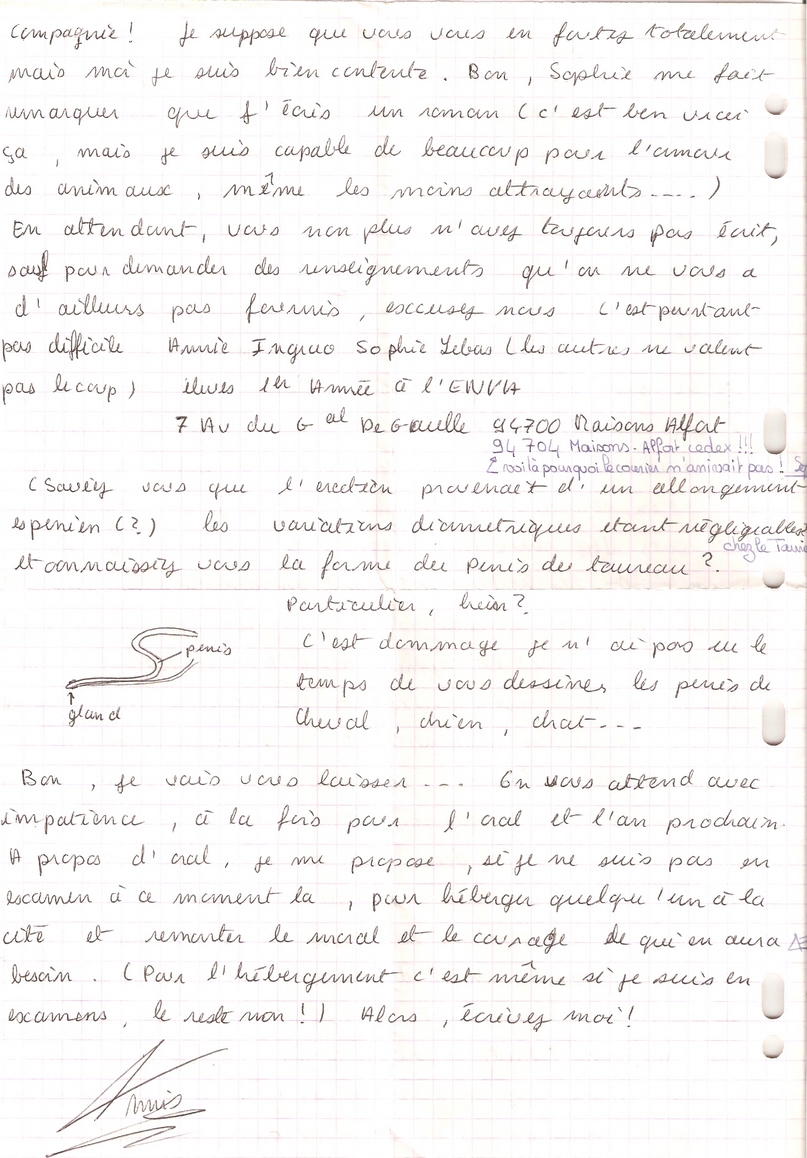 compagnie ! Je suppose que vous vous en foutez totalement
mais moi je suis bien contente. Bon, Sophie me fait
remarquer que j'écris un roman (c'est ben vrai
ça, mais je suis capable de beaucoup pour l'amour
des animaux, même les moins attrayants....)
En attendant, vous non plus n'avez toujours pas écrit,
sauf pour demander des renseignements qu'on ne vous a
d'ailleurs pas fournis, excusez nous c'est pourtant
pas difficile Annie Ingrao Sophie Lebas (les autres ne valent
pas le coup) élèves 1er Année à l'ENVA
7 Av du Gal De Gaulle 94700 Maisons Alfort
94 704 Maisons-Alfort cedex !!!
voilà pourquoi le courier n'arrivait pas !
(Saviez vous que l'erection provenait d'un allongement
espenien (?) les variations diametriques etant négligeables
chez le
et connaissiez vous la forme du penis du taureau ?.
Particulier, hein ?
penis
gland
C'est dommage je n'ai pas eu le
temps de vous dessiner les penis de
cheval, chien, chat---
Bon, je vais vous laisser --- On vous attend avec
impatience, à la fois pour l'oral et l'an prochain.
A propos d'oral, je me propose, si je ne suis pas en
examen à ce moment la, pour héberger quelqu'un à la
cité et remonter le moral et le courage de qui en aura
besoin. (Pour l'hébergement c'est même si je suis en
examens, le reste non !) Alors, écrivez moi !
Annie